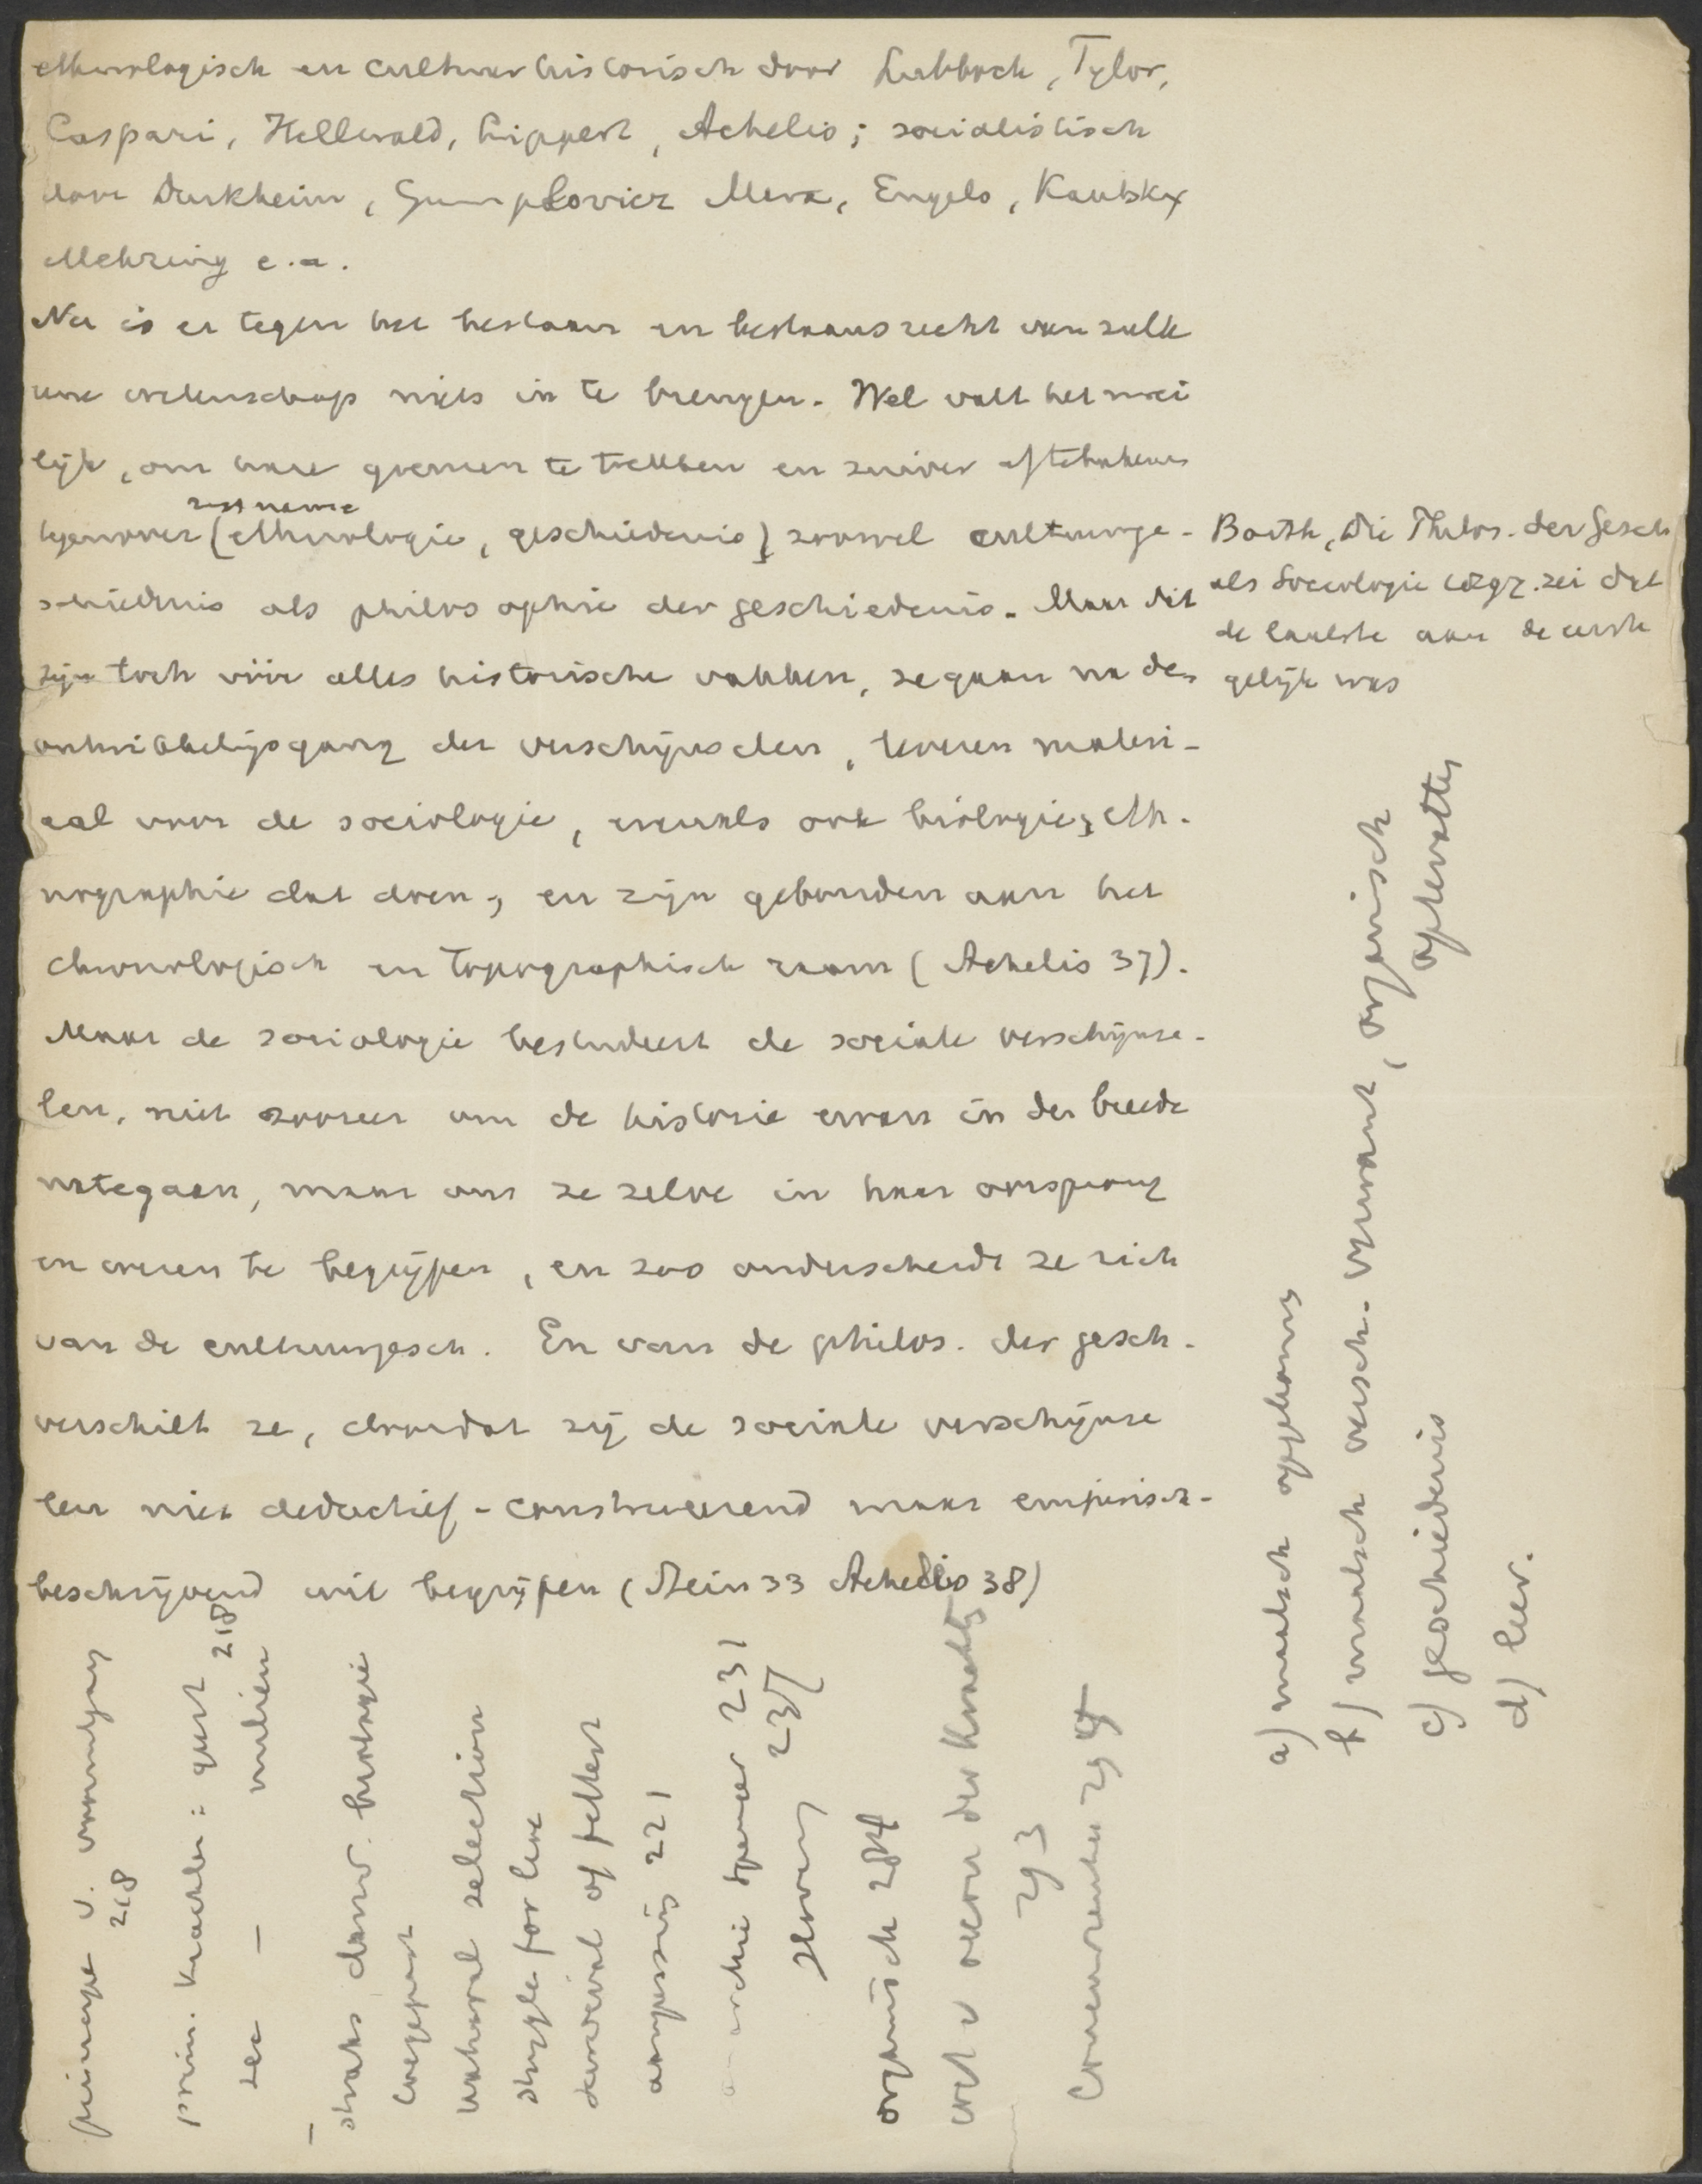 ethnologisch en cultuurhistorisch door Lubbock, Tylor,
Caspari, Hellwald, Lippert, Achelis; socialistisch
door Durkheim, Gumplovicz Marx, Engels, Kautsky
Mehring e.a.
Nu is er tegen het bestaan en bestaansrecht van zulk
eene wetenschap niets in te brengen. Wel valt het moei
lijk, om hare grenzen te trekken en zuiver aftebakenen
tegenover (ethnologie, geschiedenis) zoowel cultuurge-
schiedenis als philosophie der geschiedenis. Maar dit
zijn toch vóór alles historische vakken, ze gaan na den
ontwikkelingsgang der verschijnselen, leveren materi-
aal voor de sociologie, evenals ook biologie, eth-
nographie dat doen, en zijn gebonden aan het
chronologisch en topographisch raam (Achelis 37).
Maar de sociologie bestudeert de sociale verschijnse-
len, niet zoozeer om de historie ervan in den breede
nategaan, maar om ze zelve in haar oorsprong
en wezen te begrijpen, en zoo onderscheidt ze zich
van de cultuurgesch. En van de philos. der gesch.
verschilt ze, doordat zij de sociale verschijnse
len niet deductief-construeerend maar empirisch-
beschrijvend wil begrijpen (Stein 33 Achelis 38)
Barth, Die Philos. der Gesch
als Sociologie 1897. zei dat
de laatste aan de eerste
gelijk was
a) maatsch opgekomen
b) maatsch versch. verwant, organisch
opgevat
c) geschiedenis
d) leer.
principe v.
218
prim. krachten: 218
sec — milieu
straks darw. biologie
toegepast
natural selection
struggle for live
survival of fittest
aanpassing 221
Spencer 231
237
organisch 284
wet v
293
294